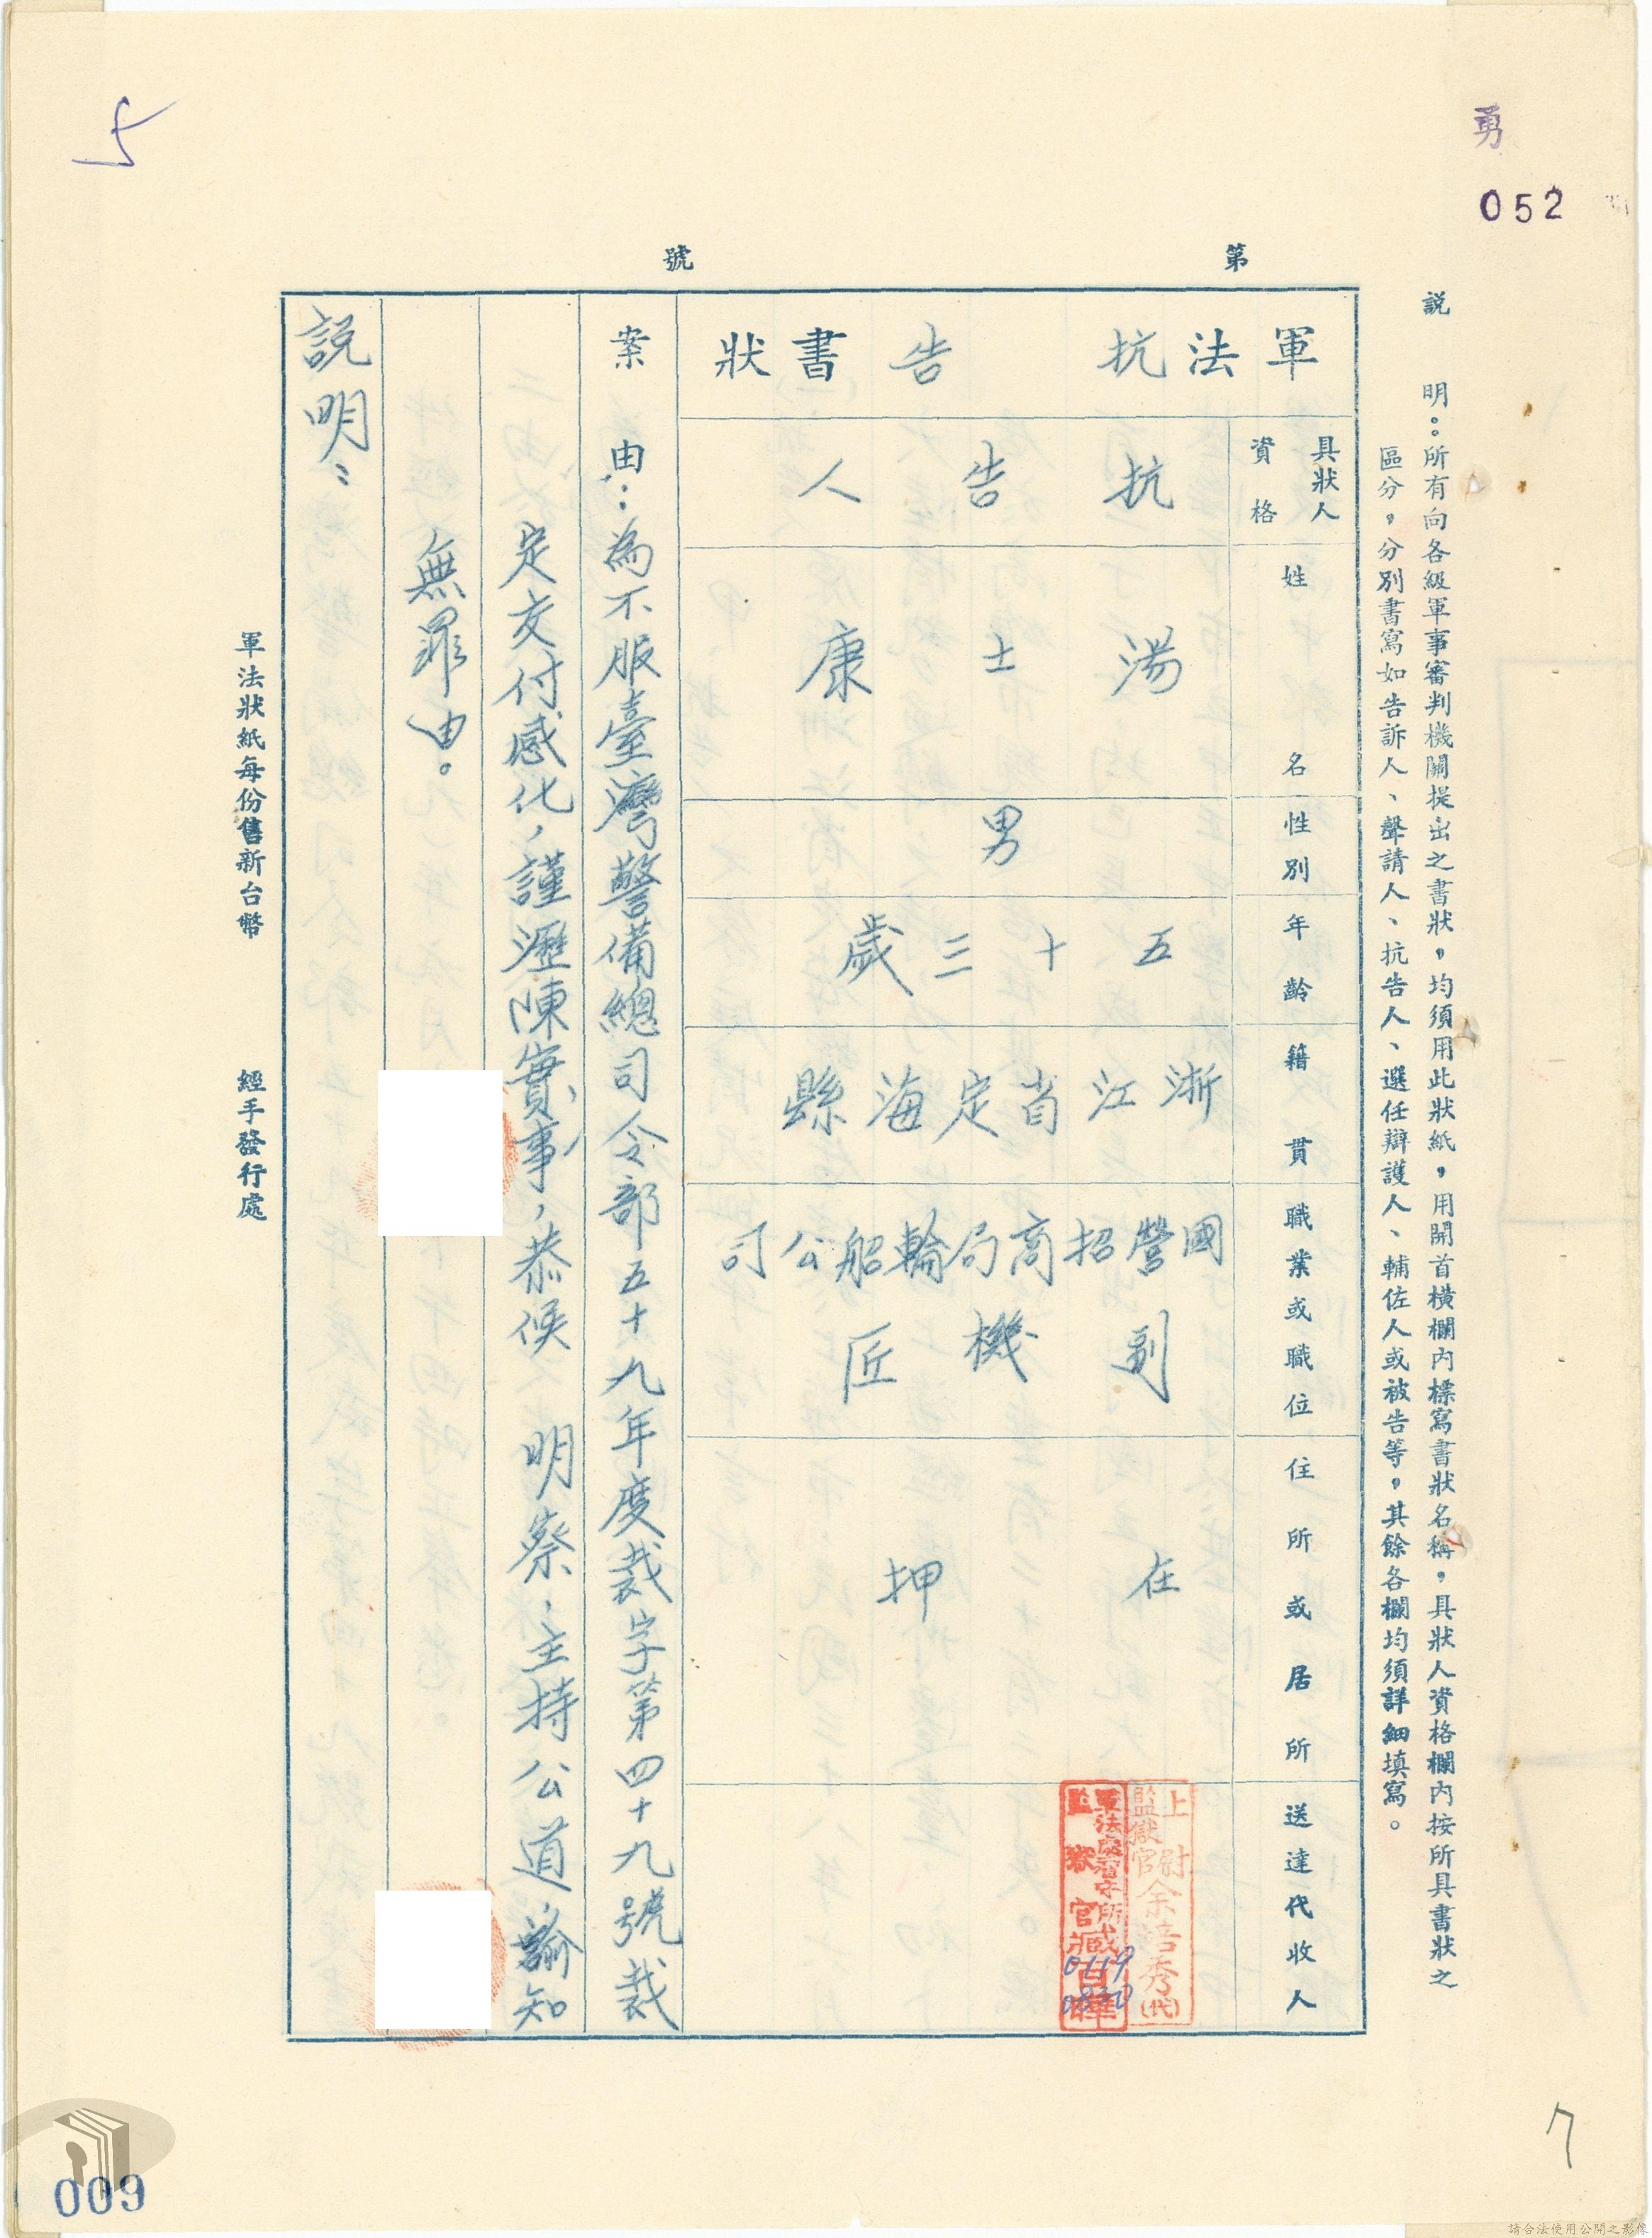 勇
052
第　號
說　明：所有向各級軍事審判機關提出之書狀，均須用此狀紙，用開首橫欄內標寫書狀名稱，具狀人資格欄內按所具書狀之
區分，分別書寫如告訴人、聲請人、抗告人、選任辯護人、輔佐人或被告等，其餘各欄均須詳細填寫。
軍法抗告書狀
具狀人資格
抗告人
姓名
湯士康
性別
男
年齡
五十三歲
籍貫
浙江省定海縣
職業或職位
國營招商局輪船公司
副機匠
住所或居所
在押
送達代收人
上尉
監獄官余培秀(代)
軍法處看守所
監獄官臧
0119
0830
案由：為不服臺灣警備總司令部五十九年度裁字第四十九號裁
定交付感化，謹瀝陳實事，恭候　明察，主持公道，諭知
無罪由。
說明：
軍法狀紙每份售新台幣　經手發行處
5
7
009
請合法使用公開之影像